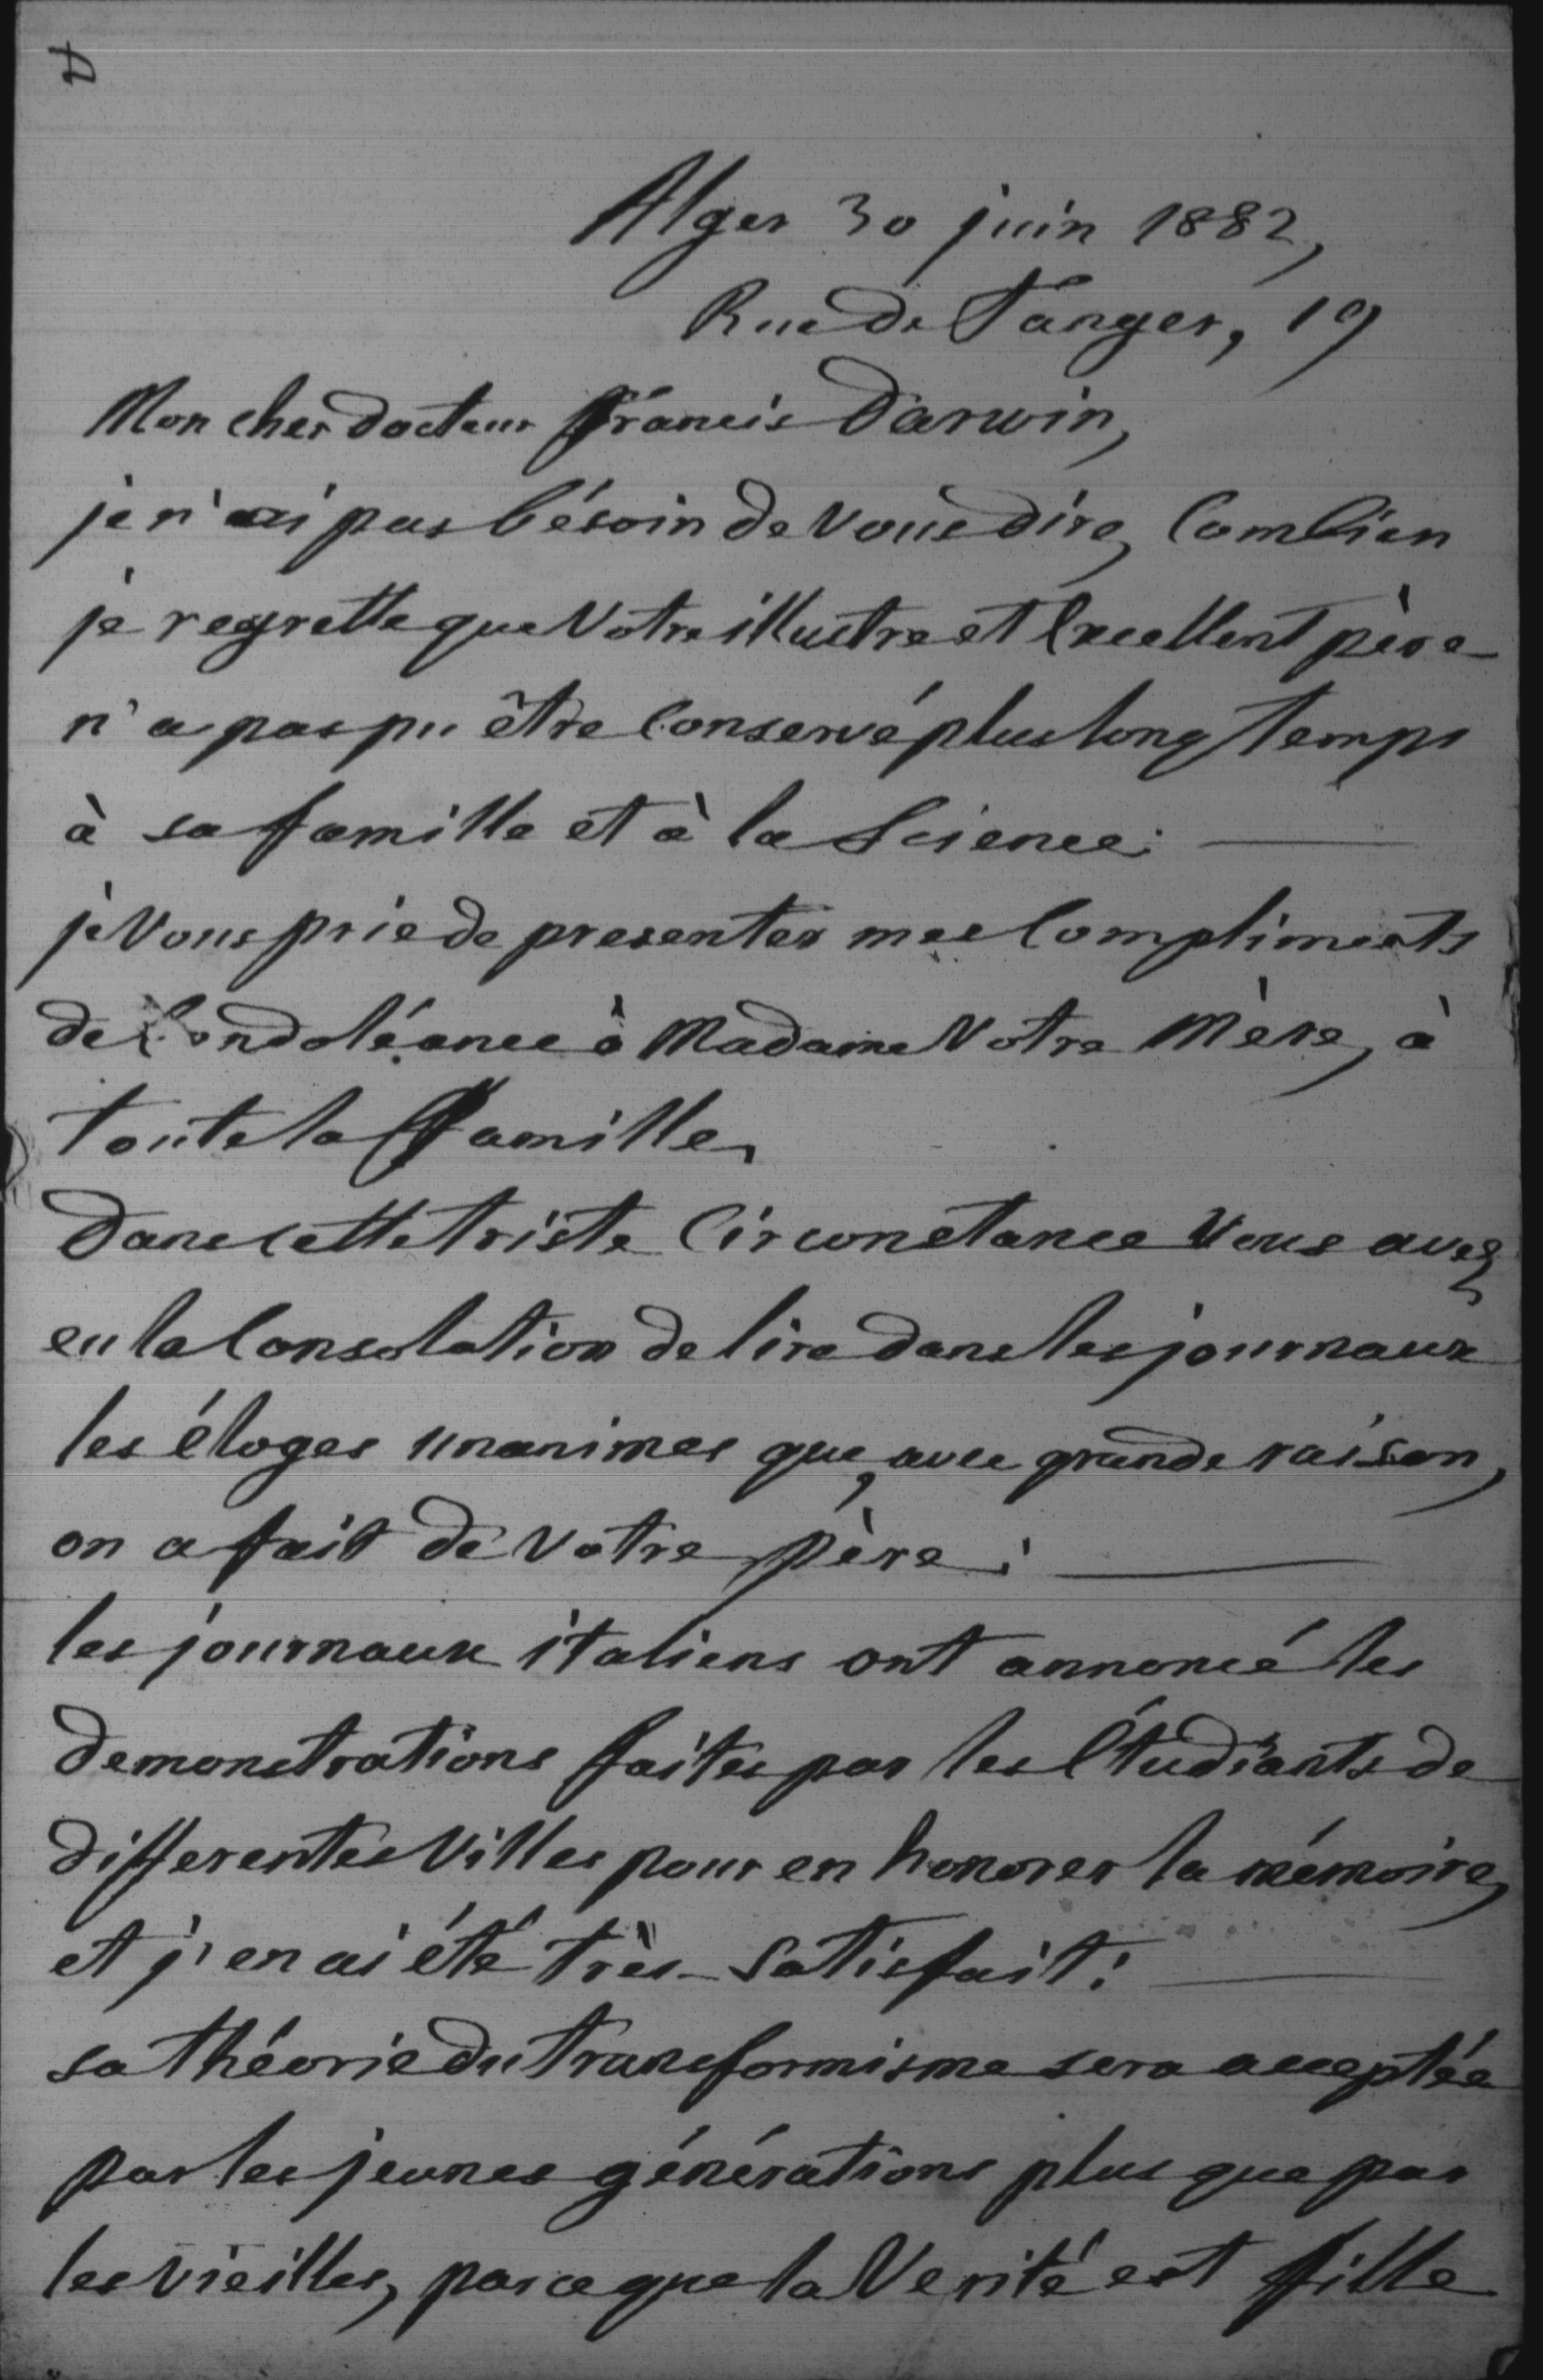 A
Alger 30 juin 1882,
Rue de Tanger, 19
Mon cher docteur Francis Darwin,
je n'ai pas bésoin de vous dire, combien
je regrette que Votre illustre et Excellent père
n'a pas pu être conservé plus long temps
à sa famille et à la Science:
je Vous prie de presenter mes compliments
de Condoléance à Madame Votre Mère, à
toute la famille,
Dans cette triste Circonstance Vous avez
eu la Consolation de lire dans les journaux
les éloges unanimes que, avec grande raison,
on a fait de Votre père:
les journaux italiens ont annoncé les
demonstrations faites par les Étudiants de
differentes Villes pour en honorer la mémoire,
et j'en ai été très-satisfait:
sa théorie du transformisme sera acceptée
par les jeunes générations plus que par
les vieilles, parce que la Verité est fille